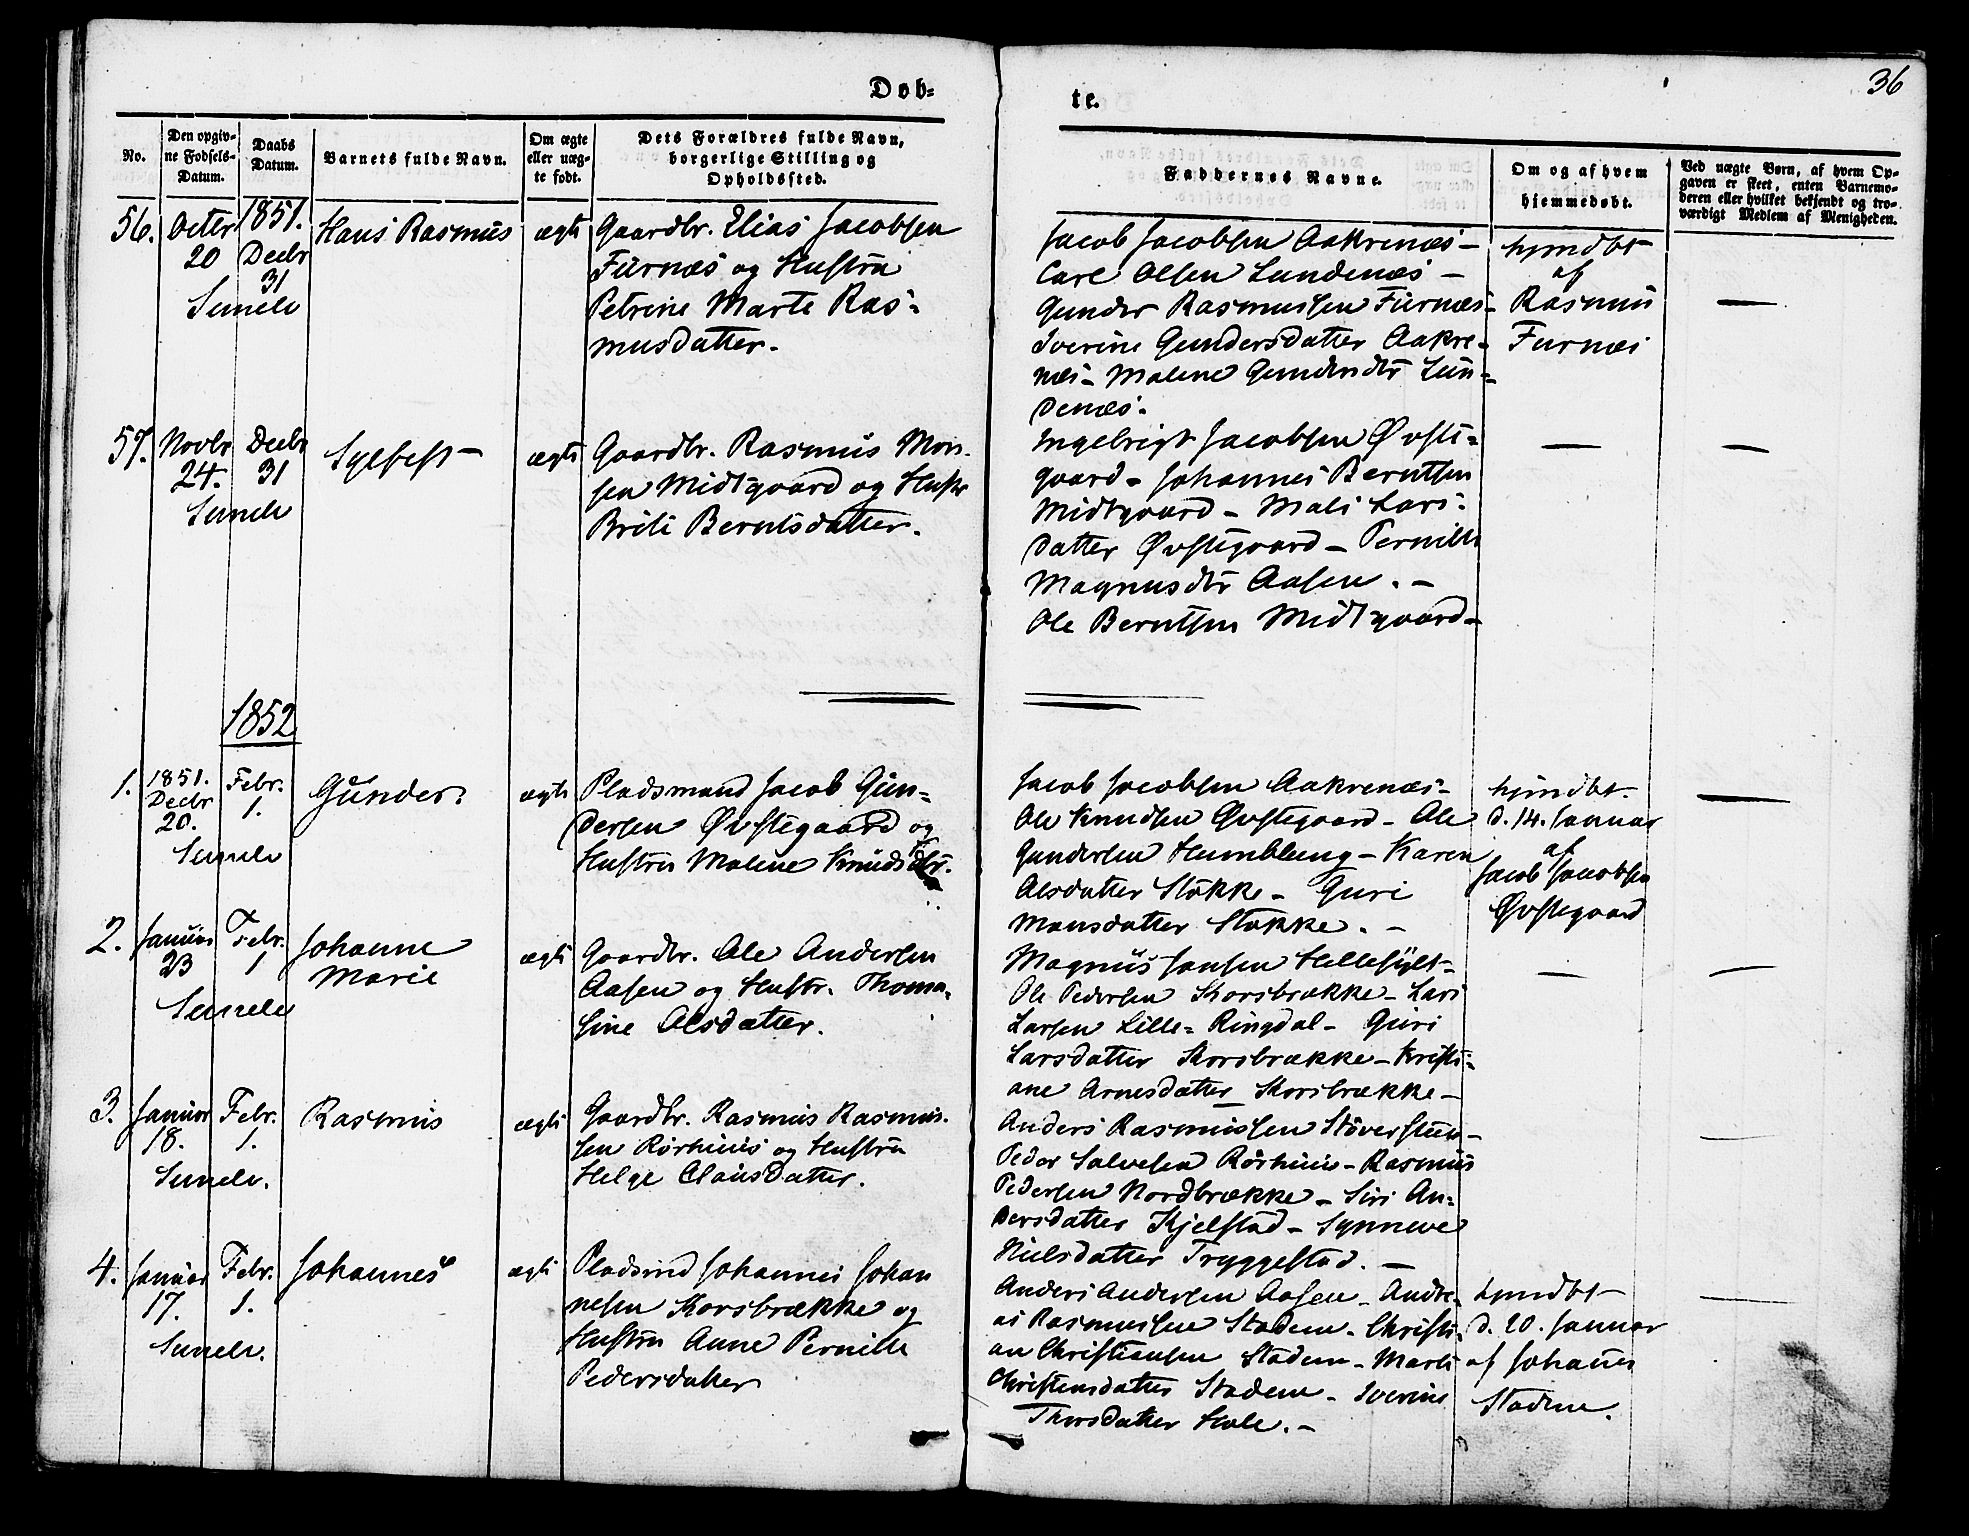 36
Døb-
te.
No.
Den opgiv-
ne Fødsels-
Datum.
Daabs
Datum.
Barnets fulde Navn.
Om ægte
eller uæg-
te født.
Dets Forældres fulde Navn,
borgerlige Stilling og
Opholdssted.
Faddernes Navne.
Om og af hvem
hjemmedøbt.
Ved uægte Børn, af hvem Op-
gaven er skeet, enten Barnemo-
deren eller hvilket bekjendt og tro-
værdigt Medlem af Menigheden.
56.
Octbr
20
1851.
Decbr
31
Sunelv
Hans Rasmus
ægte
Gaardbr. Elias Jacobsen
Furnæs og Hustru
Petrine Marte Ras-
musdatter.
Jacob Jacobsen Aakrenæs -
Carl Olsen Lundenæs -
Gunder Rasmussen Furnæs -
Iverine Gundersdatter Aakre-
næs - Malene Gundersdtr Lun-
denæs.
hjmdbt
af
Rasmus
Furnæs
57.
Novbr
24.
Decbr
31
Sunelv
Sylfest
ægte
Gaardbr. Rasmus Mon-
sen Midtgaard og Hustr
Brite Berntsdatter.
Ingebrigt Jacobsen Øvste-
gaard - Johannes Berntsen
Midtgaard - Mali Lars-
datter Øvstegaard - Pernille
Magnusdtr Aasen. -
Ole Berntsen Midtgaard -
1852
1.
1851.
Decbr
20.
Febr.
1.
Sunelv
Gunder.
ægte
Pladsmand Jacob Gun-
dersen Øvstegaard og
Hustru Malene Knudsdtr.
Jacob Jacobsen Aakrenæs -
Ole Knudsen Øvstegaard - Ole
Gundersen Humblung - Karen
Olsdatter Stokke - Guri
Monsdatter Stokke. -
hjmdbt.
d. 14. Januar
af
Jacob Jacobsen
Øvstegaard
2.
Januar
23
Febr.
1
Sunelv
Johanne
Marie
ægte
Gaardbr. Ole Andersen
Aasen og Hustr. Thoma-
sine Olsdatter.
Magnus Jansen Hellesylt -
Ole Pedersen Korsbrække - Lars
Larsen Lille-Ringdal - Guri
Larsdatter Korsbrække - Kristi-
ane Arnesdatter Korsbrække -
3.
Januar
18.
Febr.
1.
Sunelv.
Rasmus
ægte
Gaardbr. Rasmus Rasmus-
sen Rørhuus og Hustru
Helge Clausdatter.
Anders Rasmussen Støversteen -
Peder Salvesen Rørhuus - Rasmus
Pedersen Nordbrække - Siri An-
dersdatter Kjelstad - Synneve
Nielsdatter Tryggestad. -
4.
Januar
17.
Febr.
1.
Sunelv.
Johannes
ægte
Pladsmd Johannes Johan
nesen Korsbrække og
Hustru Anne Pernille
Pedersdatter
Anders Andersen Aasen - Andre-
as Rasmussen Stadem - Christi-
an Christiansen Stadem - Marte
Christensdatter Stadem - Iverine
Thorsdatter Hole. -
hjmdbt
d. 20. Januar
af Johannes
Stadem.